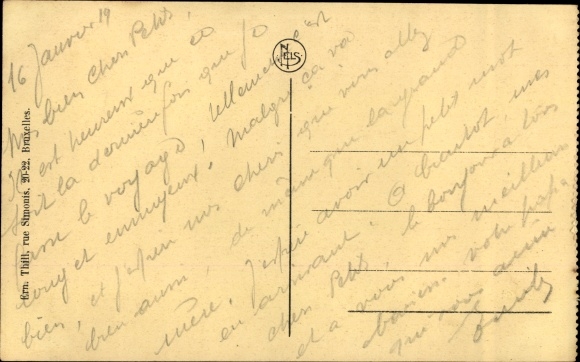 16 Janvier 19
Mes bien chers Petits,
est heureux que ce
soit la dernière fois que je
fasse le voyage, tellement c'est
long et ennuyeux. Malgré ça va
bien, et j'espère mes chers que vous allez
bien aussi, de même que la grand
mère. J'espère avoir un petit mot
en arrivant. A bientôt, mes
chers Petits, le bonjour à tous
et à vous mes meilleurs
baisers. votre papa
qui vous aime
NELS
Ern. Thill, rue Simonis, 20-22, Bruxelles.